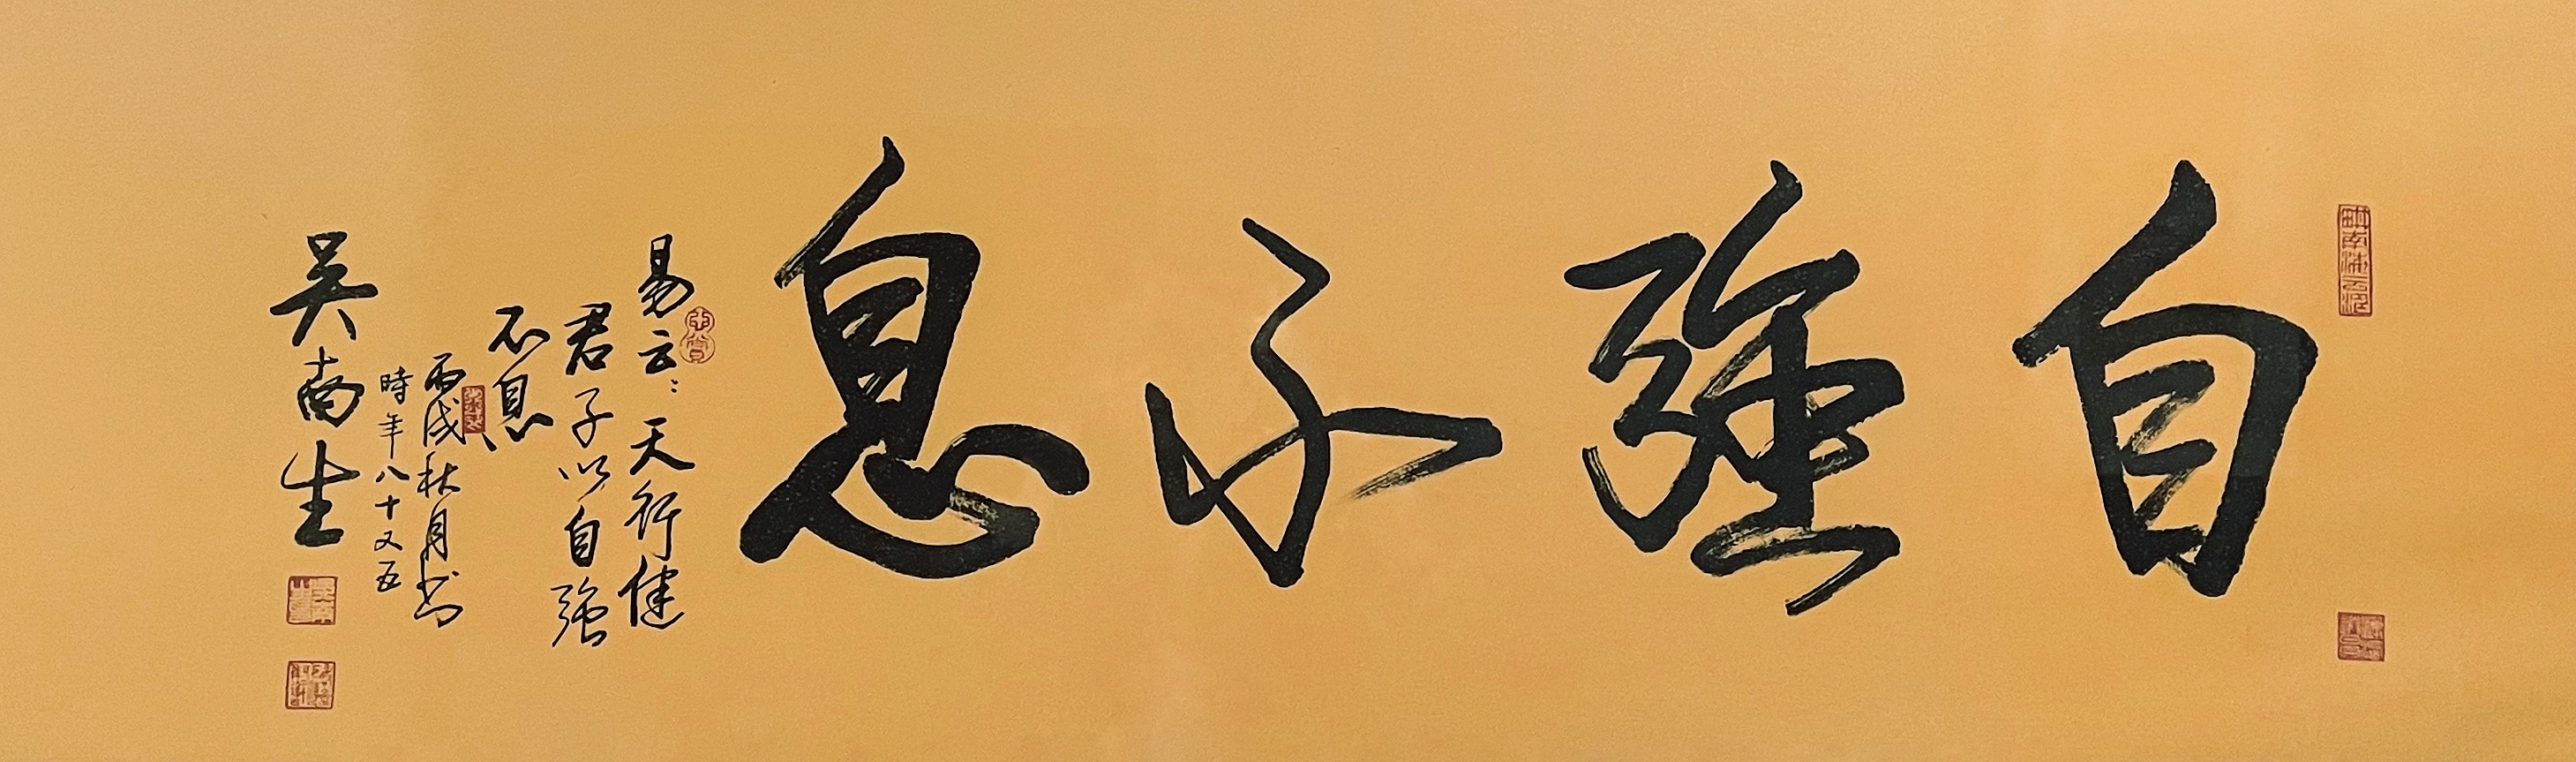 自強不息
易云：天行健
君子以自強
不息
丙戌秋月书
時年八十又五
吴南生